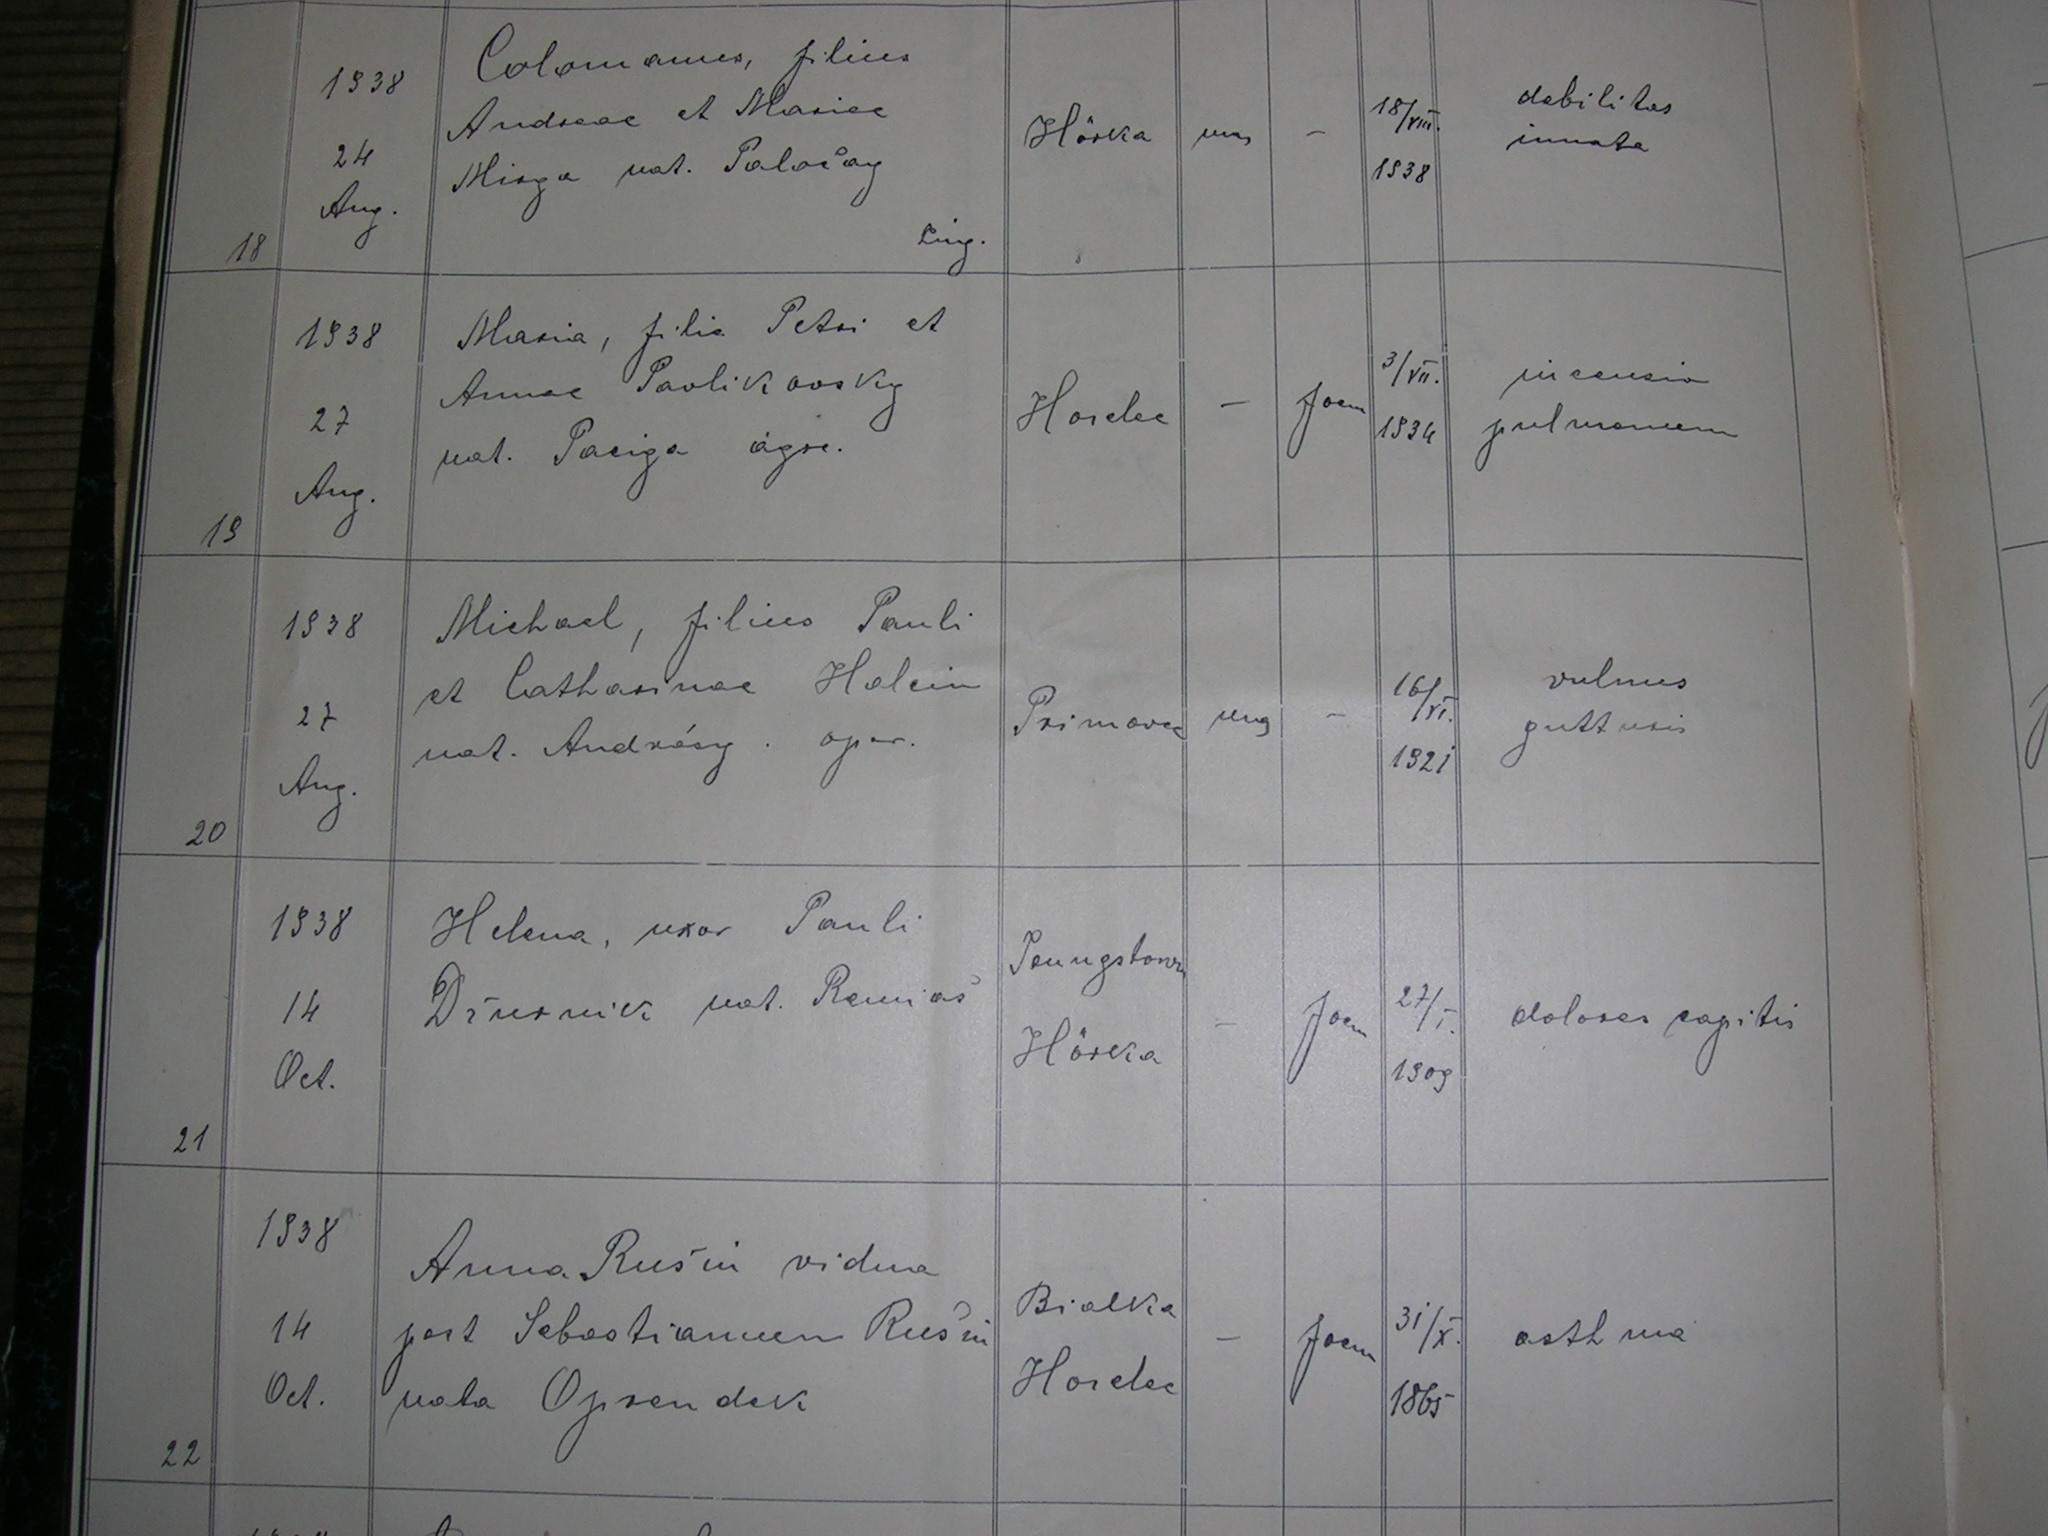 1938
24
Aug.
18
Colomanus, filius
Andreae et Mariae
Mirga nat. Paločay
zing.
Hôrka
mas
-
18/VIII.
1938
debilitas
innata
1938
27
Aug.
19
Maria, filia Petri et
Annae Pavlikovsky
nat. Paciga agre.
Hozelec
-
foem
3/VII.
1934
incensio
pulmonum
1938
27
Aug.
20
Michael, filius Pauli
et Catharinae Halcin
nat. Andrásy . oper.
Primovce
mas
-
16/VI.
1921
vulnus
gutturis
1938
14
Oct.
21
Helena, uxor Pauli
nat. Remiaš
Hôrka
-
foem
27/I.
1909
dolores capitis
1938
14
Oct.
22
Anna Rušin vidua
post Sebastianum Rušin
nata
Bialka
Hozelec
-
foem
31/X.
1865
asthma